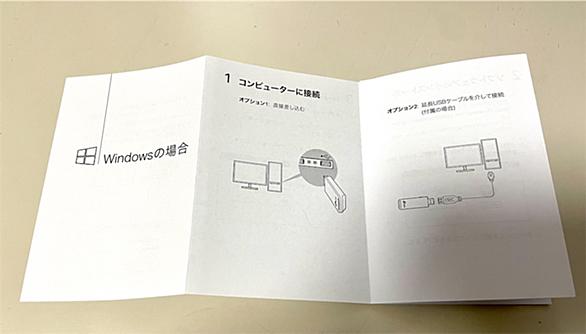 Windowsの場合
1 コンピューターに接続
オプション1: 直接差し込む
オプション2: 延長USBケーブルを介して接続
(付属の場合)